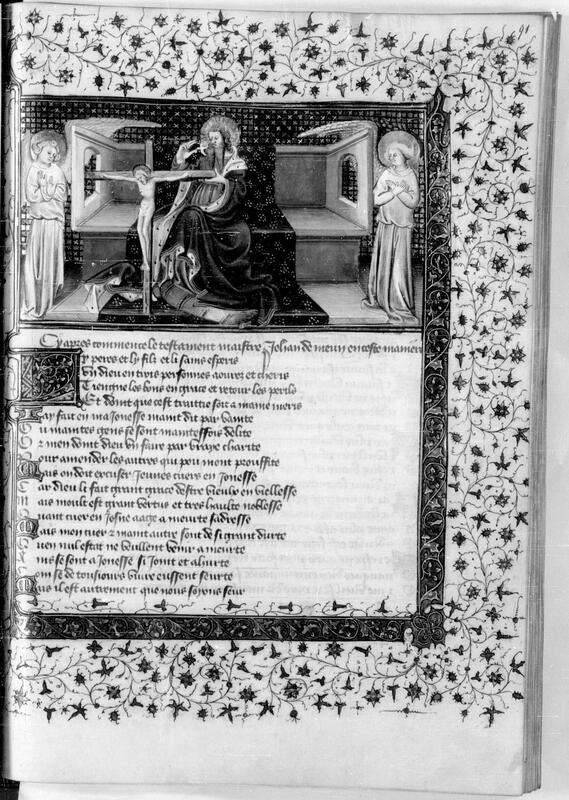 91
Cy apres commence le testament maistre Jehan de meun en ceste maniere
Li peres et ly filz et li sains esperis
Un dieu en trois personnes aoures et cheris
Tiengne les bons en grace et retour les perils
Et doint que cest traittie soit a mame meris
Jay fait en ma Jonesse maint dit par vanite
Ou maintes gens se sont maintessois delite
Or men doint dieu un faire par vraye charite
Pour amender les autres qui pou mont prouffite
Mais on doit excuser Jeunes cuers en Jonesse
Car dieu li fait grant grace destre vieulx en viellesse
Mais moult est grant vertus et tres haulte noblesse
Quant cuer en Josne aage a meurte sadresse
Mais mon cuer et maint autre sont de si grant durte
Quen nul estat ne veullent venir a meurte
Ains se sont a Jonesse si Joint et ahurte
Com se de tousiours vivre eussent seurte
Mais il est autrement que nous soyons seur